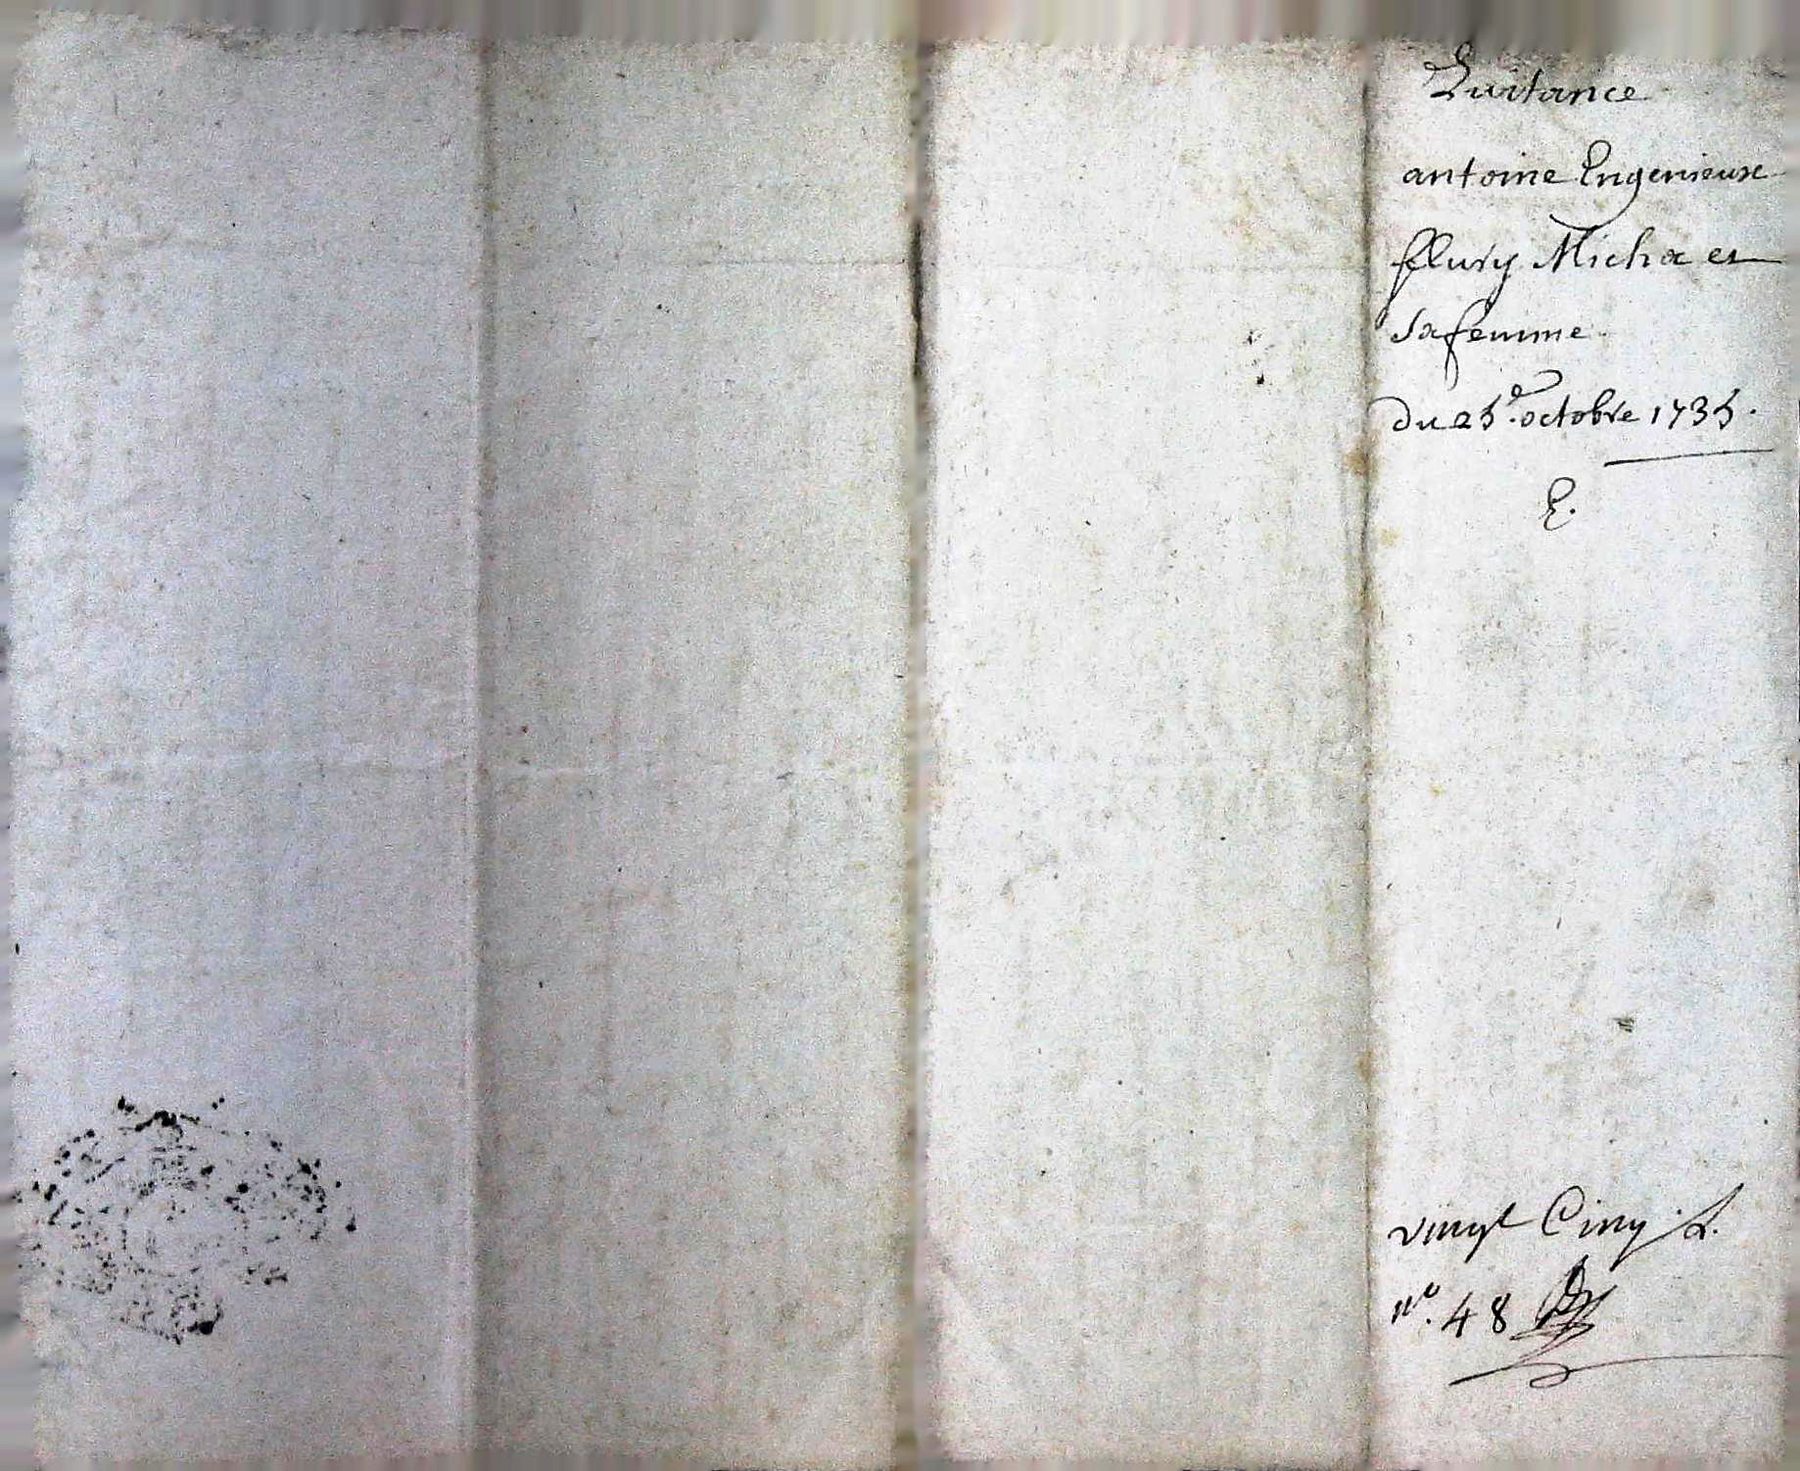 Quitance
antoine Engenieuse
fleury Micha et
sa femme.
du 25e. octobre 1735.
E.
vingt Cinq s.
no. 48